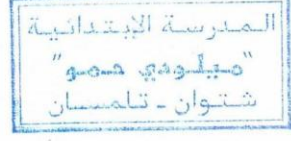 المدرسة الإبتدائية
"ميلودي حمو"
شتوان - تلمسان